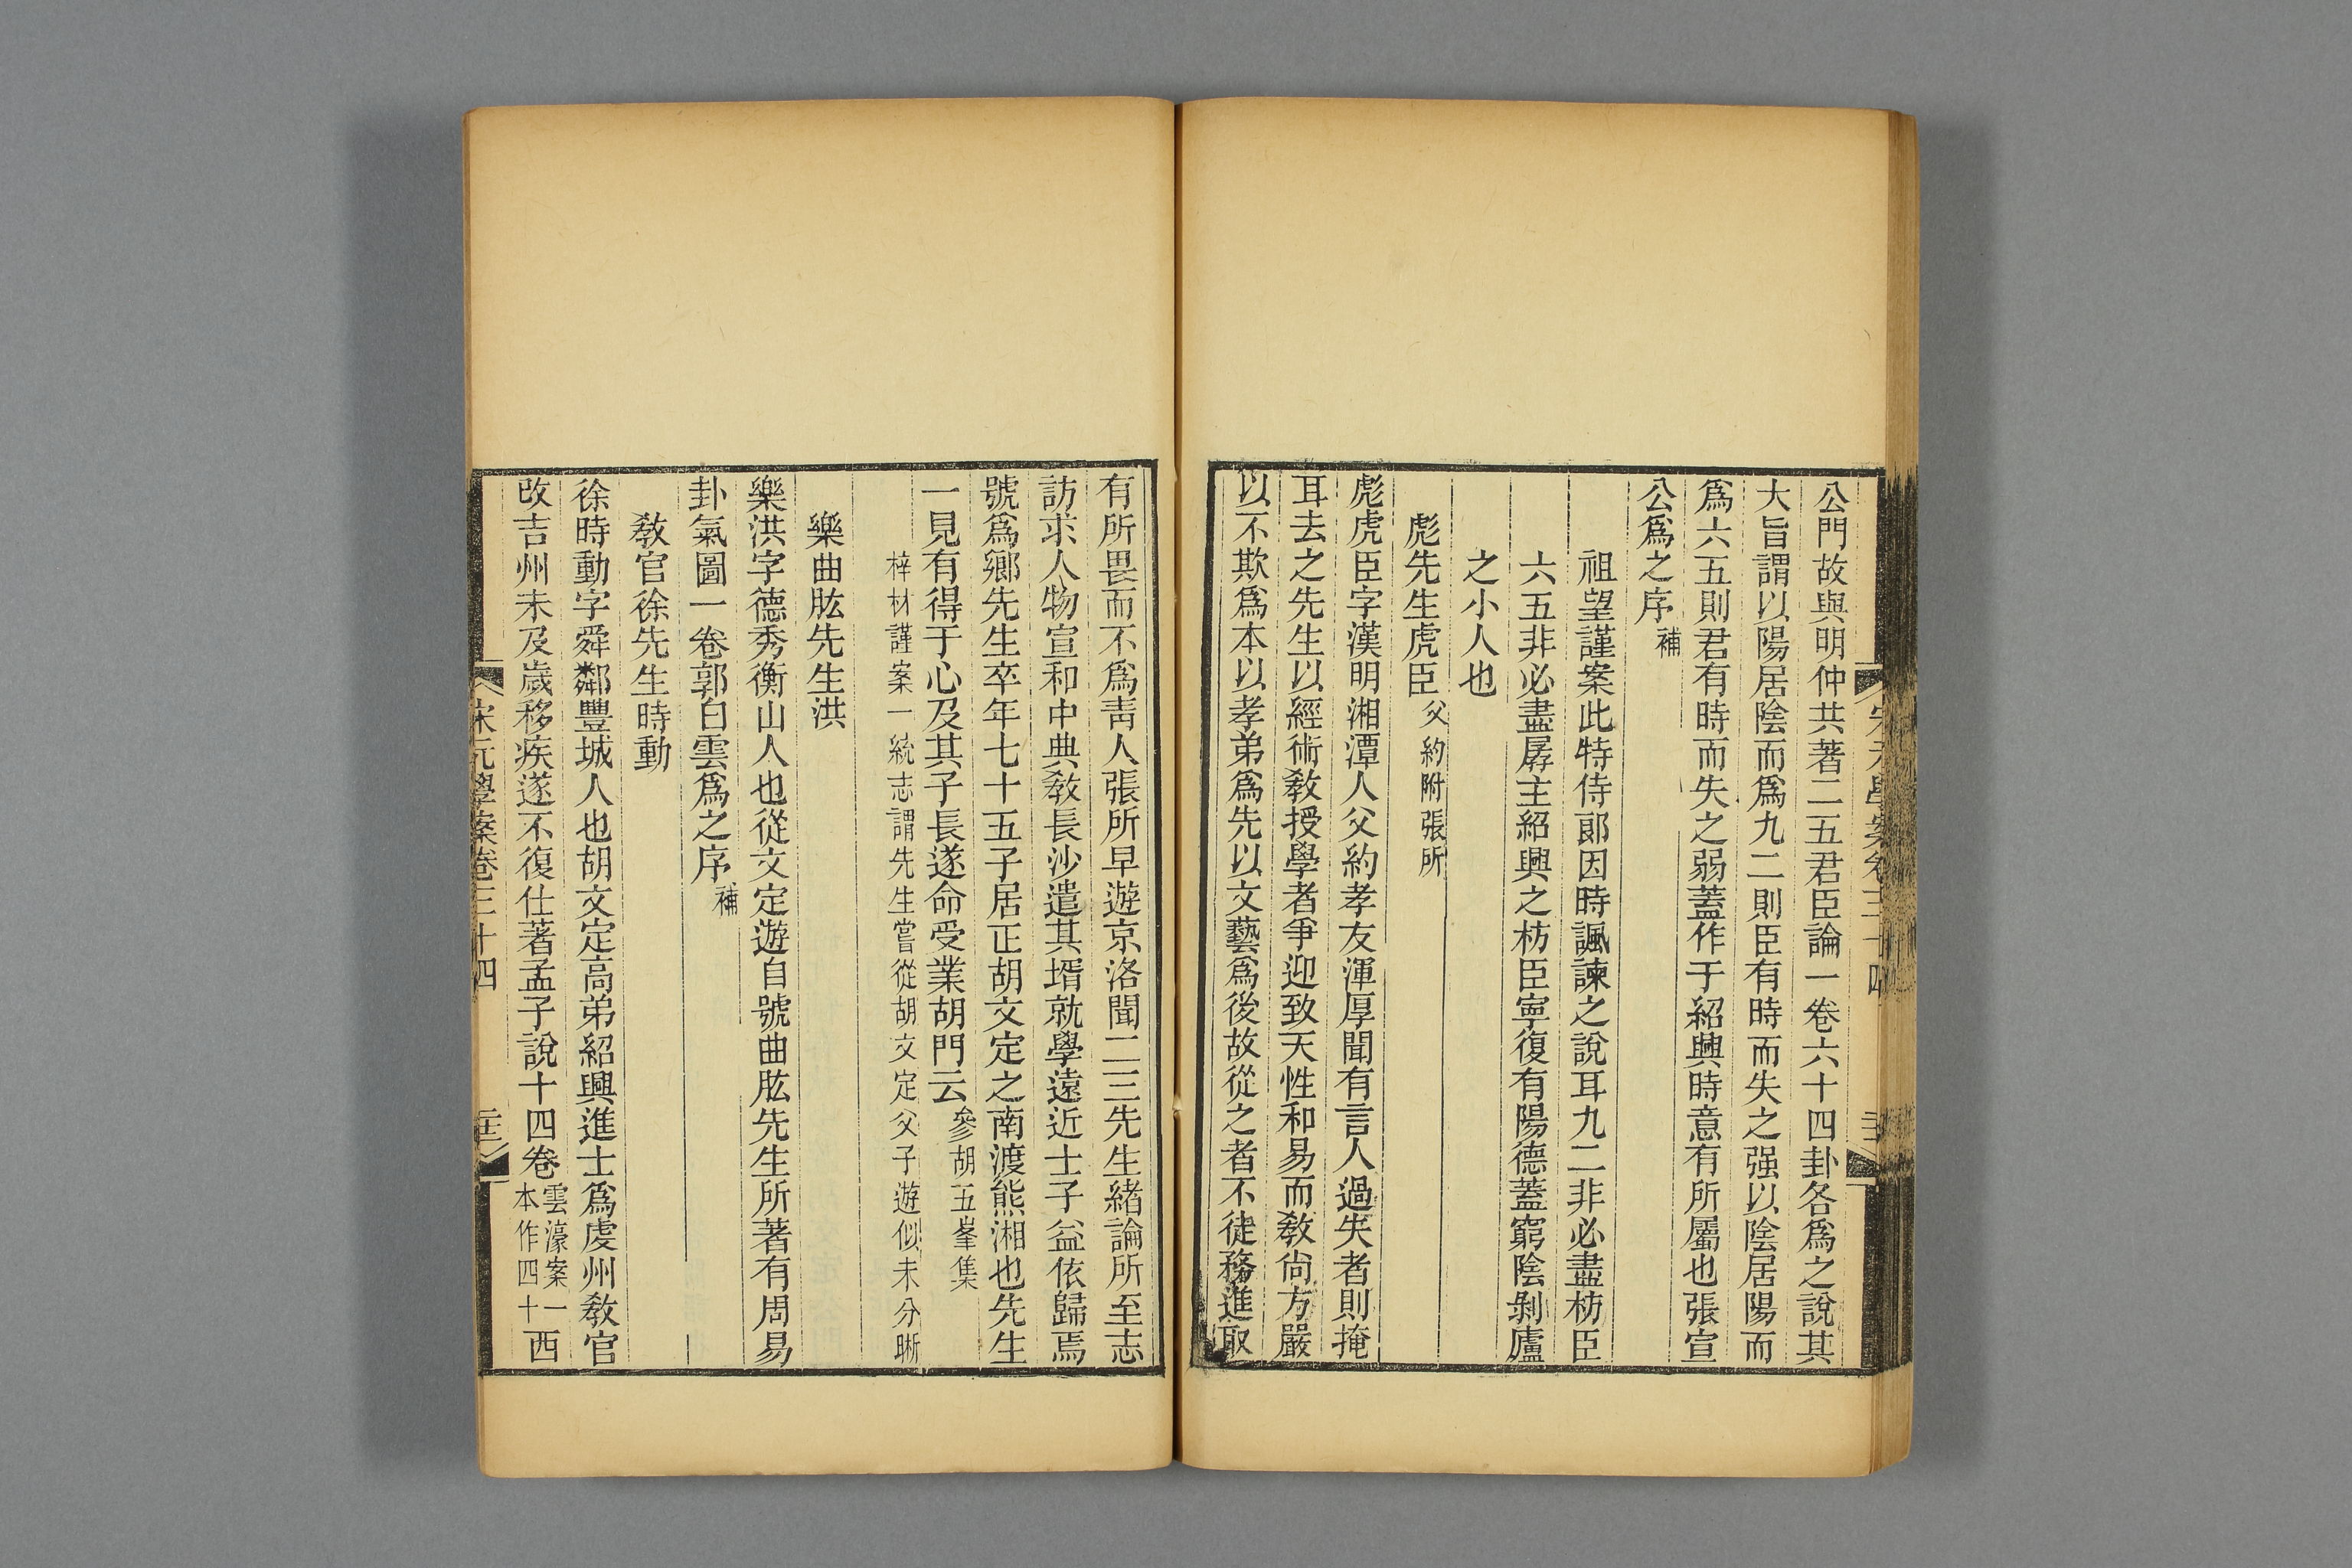 公門故與明仲共著二五君臣論一卷六十四卦各爲之說其
大旨謂以陽居陰而爲九二則臣有時而失之强以陰居陽而
爲六五則君有時而失之弱蓋作于紹興時意有所屬也張宣
公爲之序補
祖望謹案此特侍郞因時諷諫之說耳九二非必盡枋臣
六五非必盡孱主紹興之枋臣寧復有陽德蓋窮陰剝廬
之小人也
彪先生虎臣父約附張所
彪虎臣字漢明湘潭人父約孝友渾厚聞有言人過失者則掩
耳去之先生以經術敎授學者爭迎致天性和易而敎尙方嚴
以不欺爲本以孝弟爲先以文藝爲後故從之者不徒務進取
有所畏而不爲靑人張所早遊京洛聞二三先生緖論所至志
訪求人物宣和中典敎長沙遣其壻就學遠近士子益依歸焉
號爲鄕先生卒年七十五子居正胡文定之南渡熊湘也先生
一見有得于心及其子長遂命受業胡門云參胡五峯集
梓材謹案一統志謂先生嘗從胡文定父子遊似未分晰
樂曲肱先生洪
樂洪字德秀衡山人也從文定遊自號曲肱先生所著有周易
卦氣圖一卷郭白雲爲之序補
敎官徐先生時動
徐時動字舜鄰豐城人也胡文定高弟紹興進士爲虔州敎官
改吉州未及歲移疾遂不復仕著孟子說十四卷雲濠案一本作四十西
宋元學案卷三十四